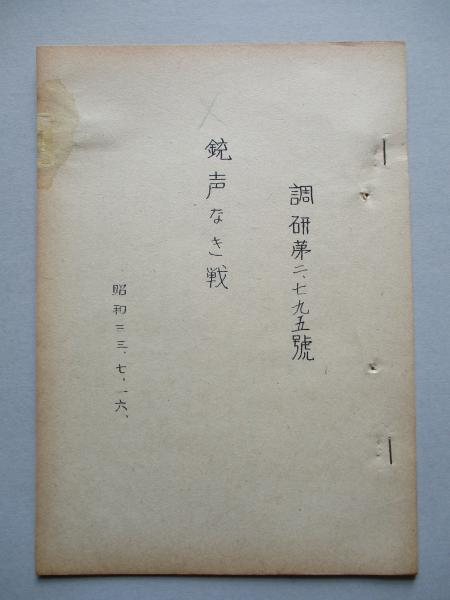 調研第二、七九五號
銃声なき戦
昭和三三、七、一六、